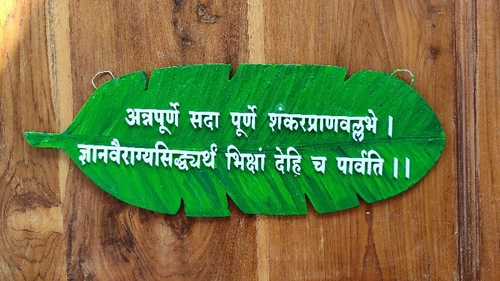 अन्नपूर्णे सदा पूर्णे शकरप्राणवल्लभे ।
ज्ञानवैराग्यसिद्ध्यर्थं भिक्षां देहि च पार्वति ।।